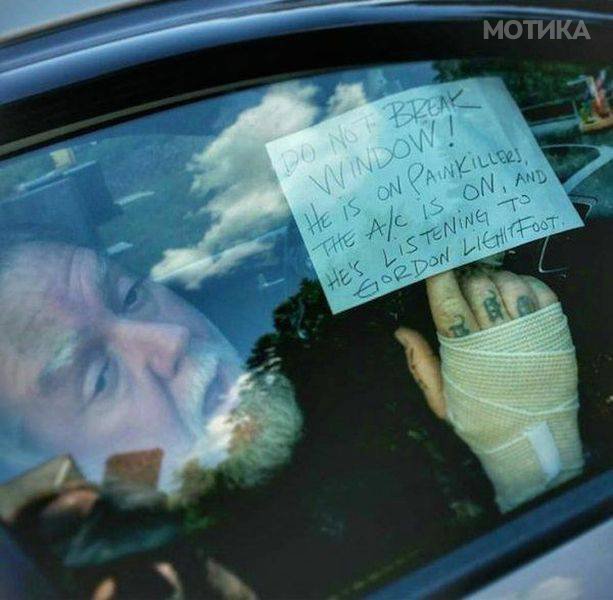 МОТИКА
DO NOT BREAK
WINDOW!
HE IS ON PAINKILLERS,
THE A/C IS ON, AND
HE'S LISTENING TO
GORDON LIGHTFOOT.